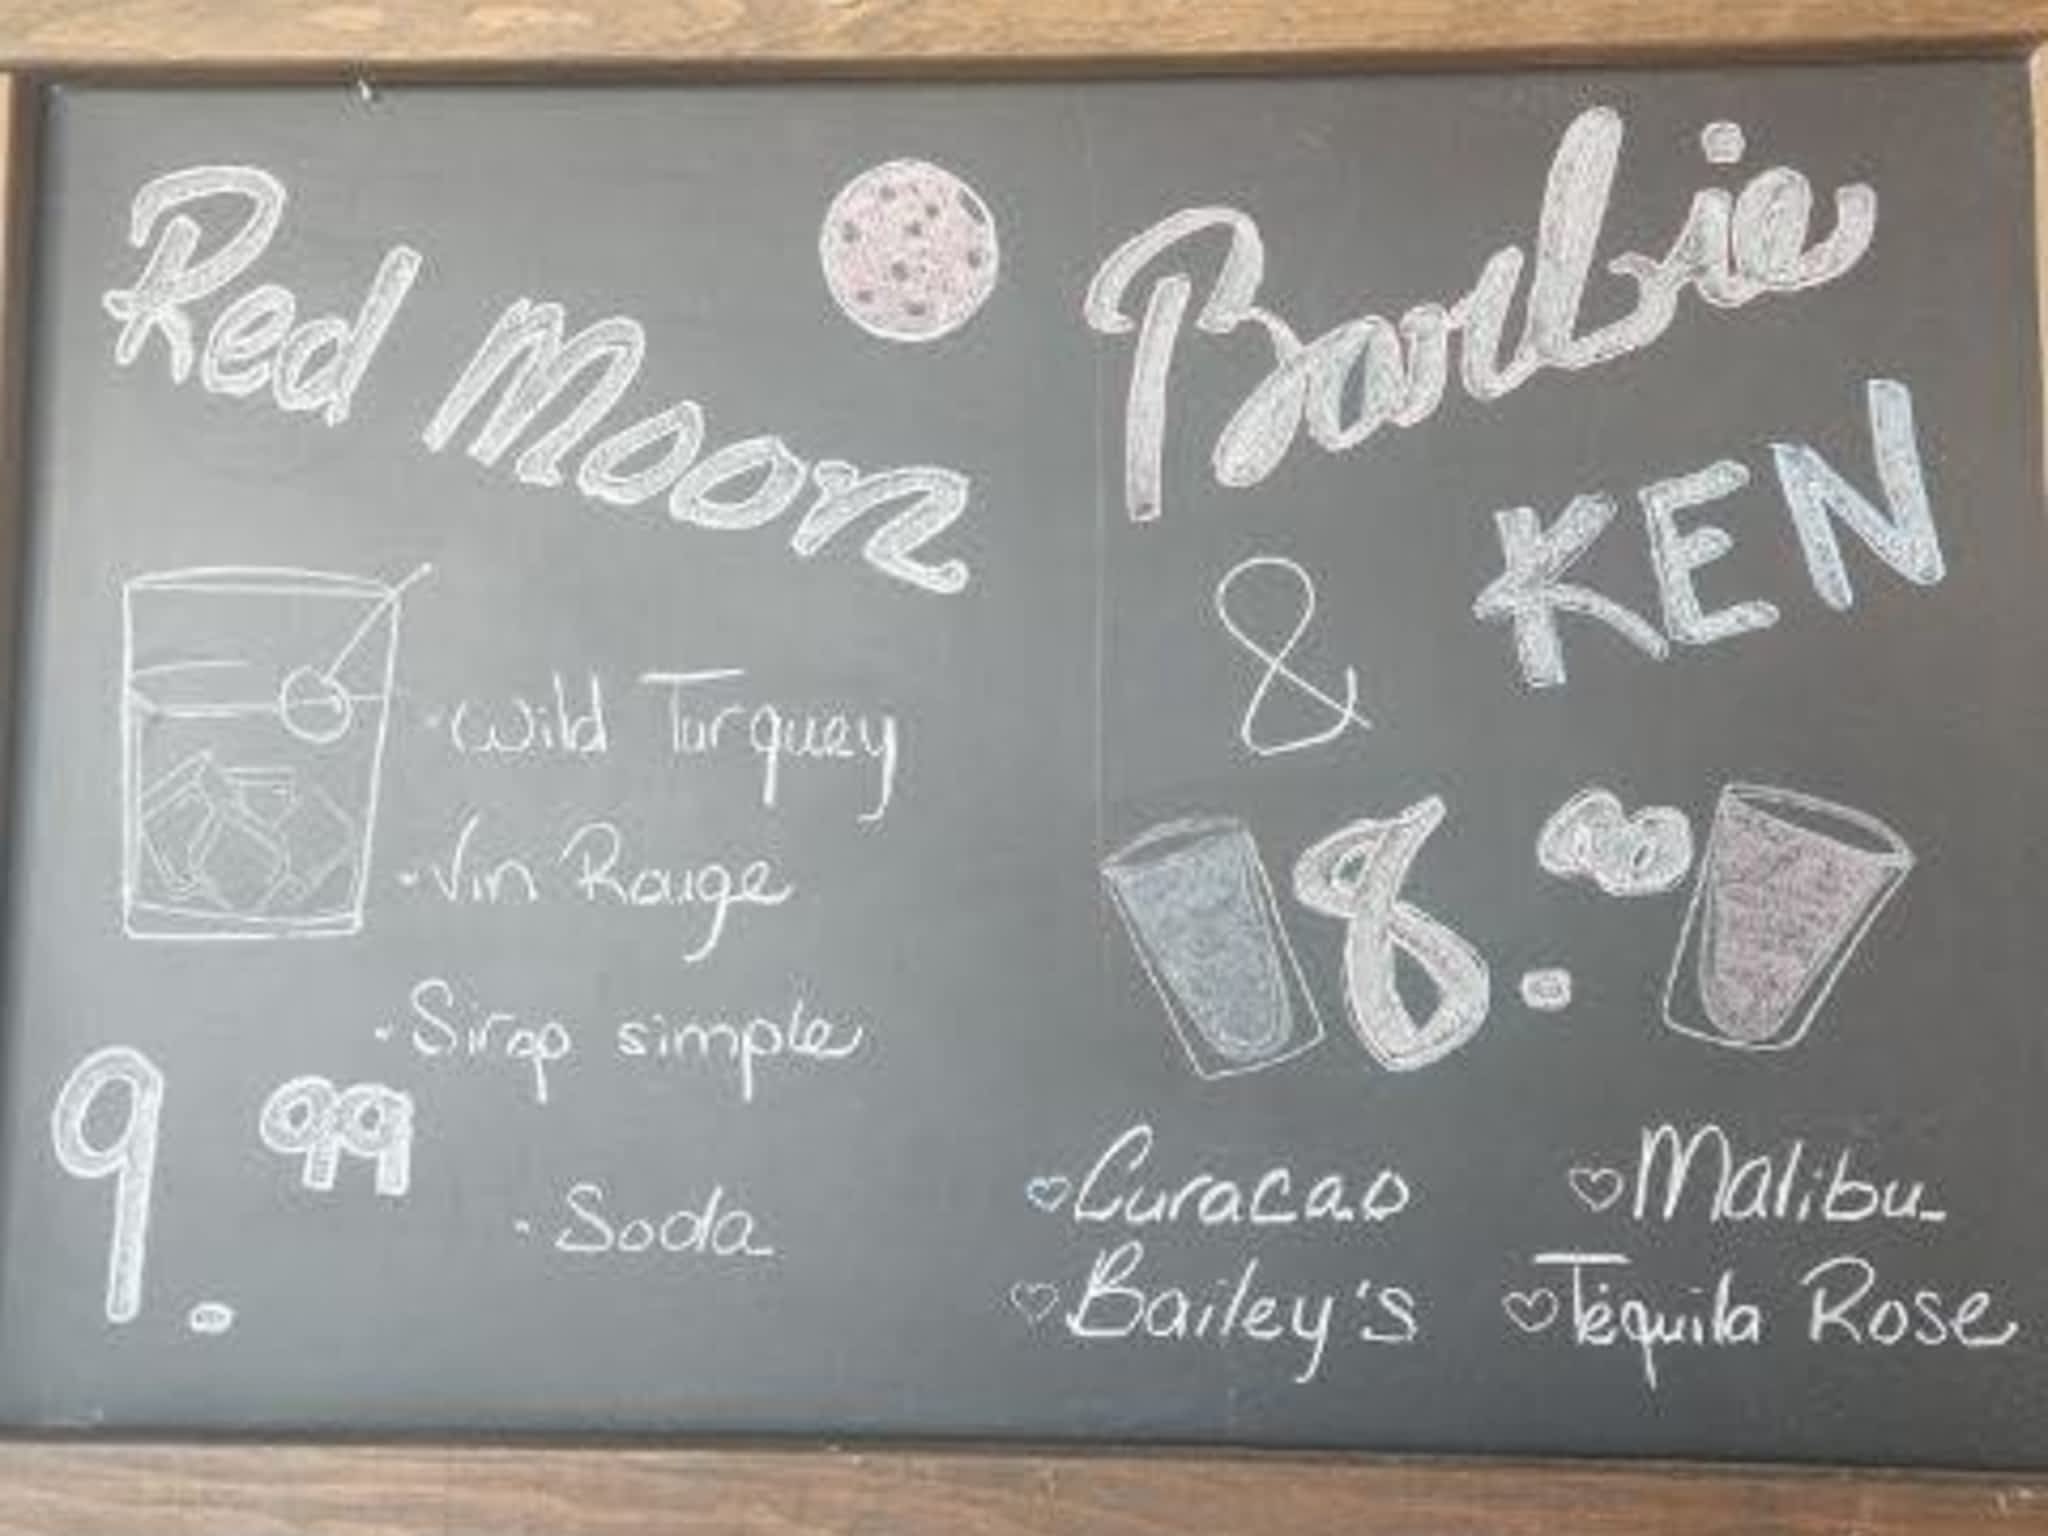 Red Moon
·Wild Turquey
·Vin Rouge
·Sirop simple
9.99
·Soda
Barbie
& KEN
8.00
♡Curacao
♡Malibu
♡Bailey's
♡Téquila Rose